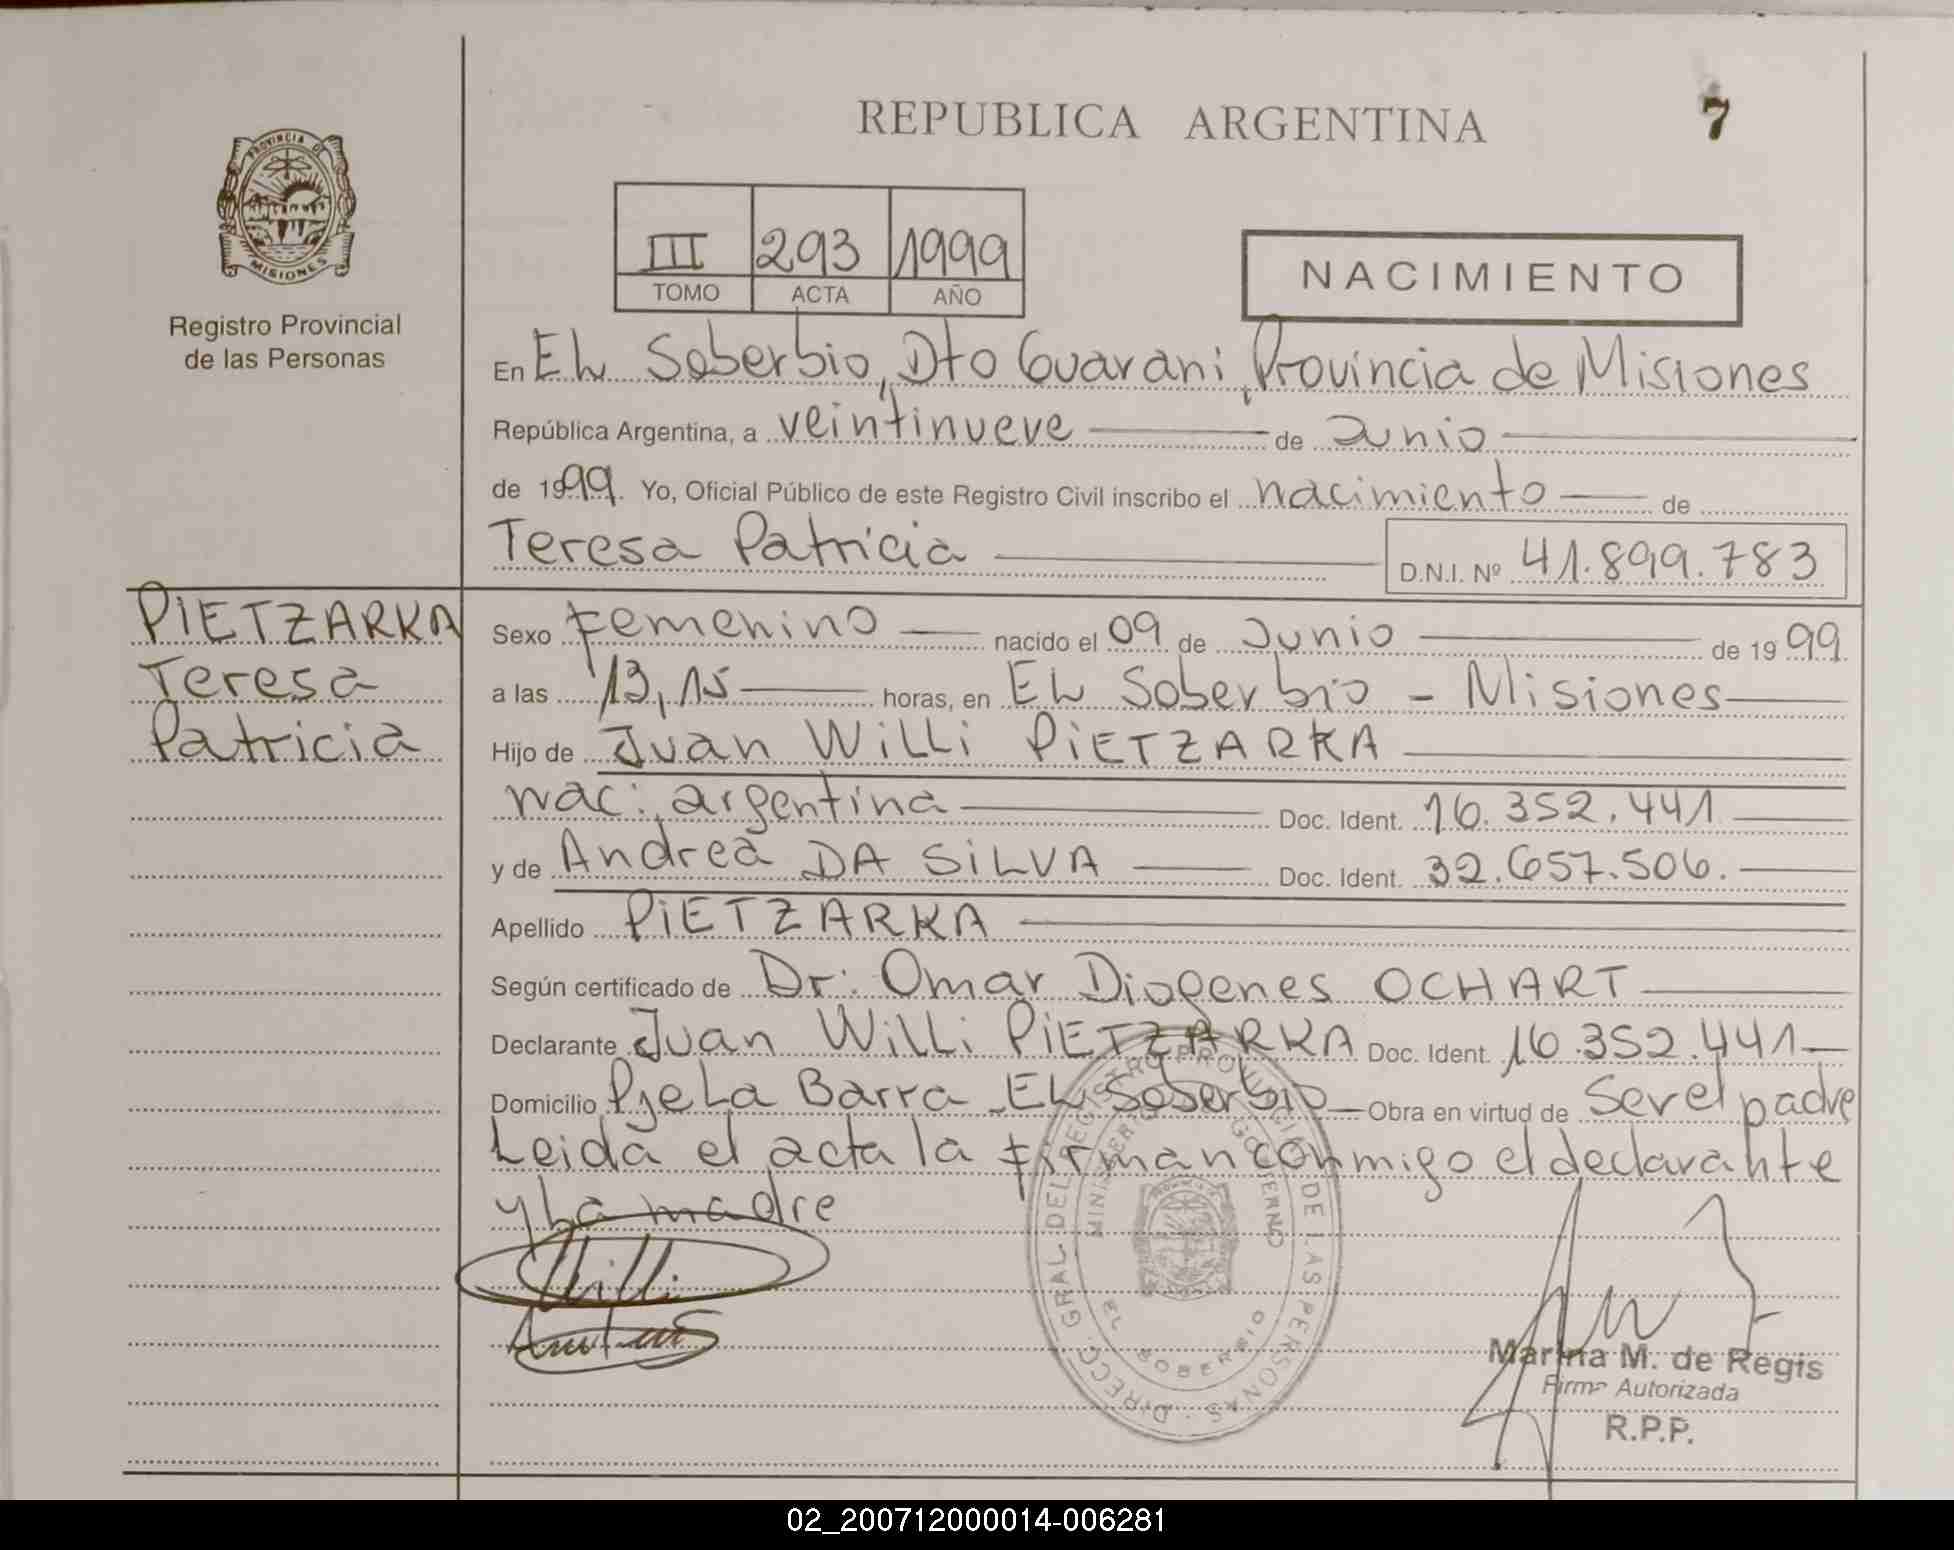 REPUBLICA ARGENTINA
7
PROVINCIA DE
MISIONES
Registro Provincial
de las Personas
III 293 1999
TOMO ACTA AÑO
NACIMIENTO
En EL Soberbio, Dto Guarani, Provincia de Misiones
República Argentina, a veintinueve de Junio
de 1999. Yo, Oficial Público de este Registro Civil inscribo el nacimiento de
Teresa Patricia D.N.I. Nº 41.899.783
PIETZARKA
Teresa
Patricia
Sexo femenino nacido el 09 de Junio de 1999
a las 13,15 horas, en EL Soberbio - Misiones
Hijo de Juan WiLLi PiETZARKA
nac: argentina Doc. Ident. 16.352.441
y de Andrea DA SiLVA Doc. Ident. 32.657.506.
Apellido PiETZARKA
Según certificado de Dr: Omar Diogenes OCHART
Declarante Juan WiLLi PiETZARKA Doc. Ident. 16.352.441
Domicilio Pje La Barra EL Soberbio Obra en virtud de Ser el padre
Leida el acta la firman conmigo el declarante
y La madre
Willi
DIRECC. GRAL DEL REGISTRO PROVINCIAL DE LAS PERSONAS
MINISTERIO GOBIERNO
EL SOBERBIO
Marina M. de Regis
Firma Autorizada
R.P.P.
02_200712000014-006281